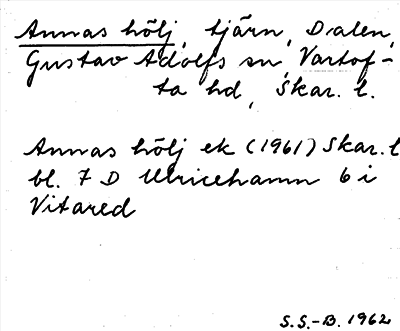 Annas hölj, tjärn, Dalen,
Gustav Adolfs sn, Vartof-
ta hd, Skar. l.
Annas hölj ek (1961) Skar. l
bl. 7 D Ulricehamn 6 i
Vitared
S.S.-B. 1962